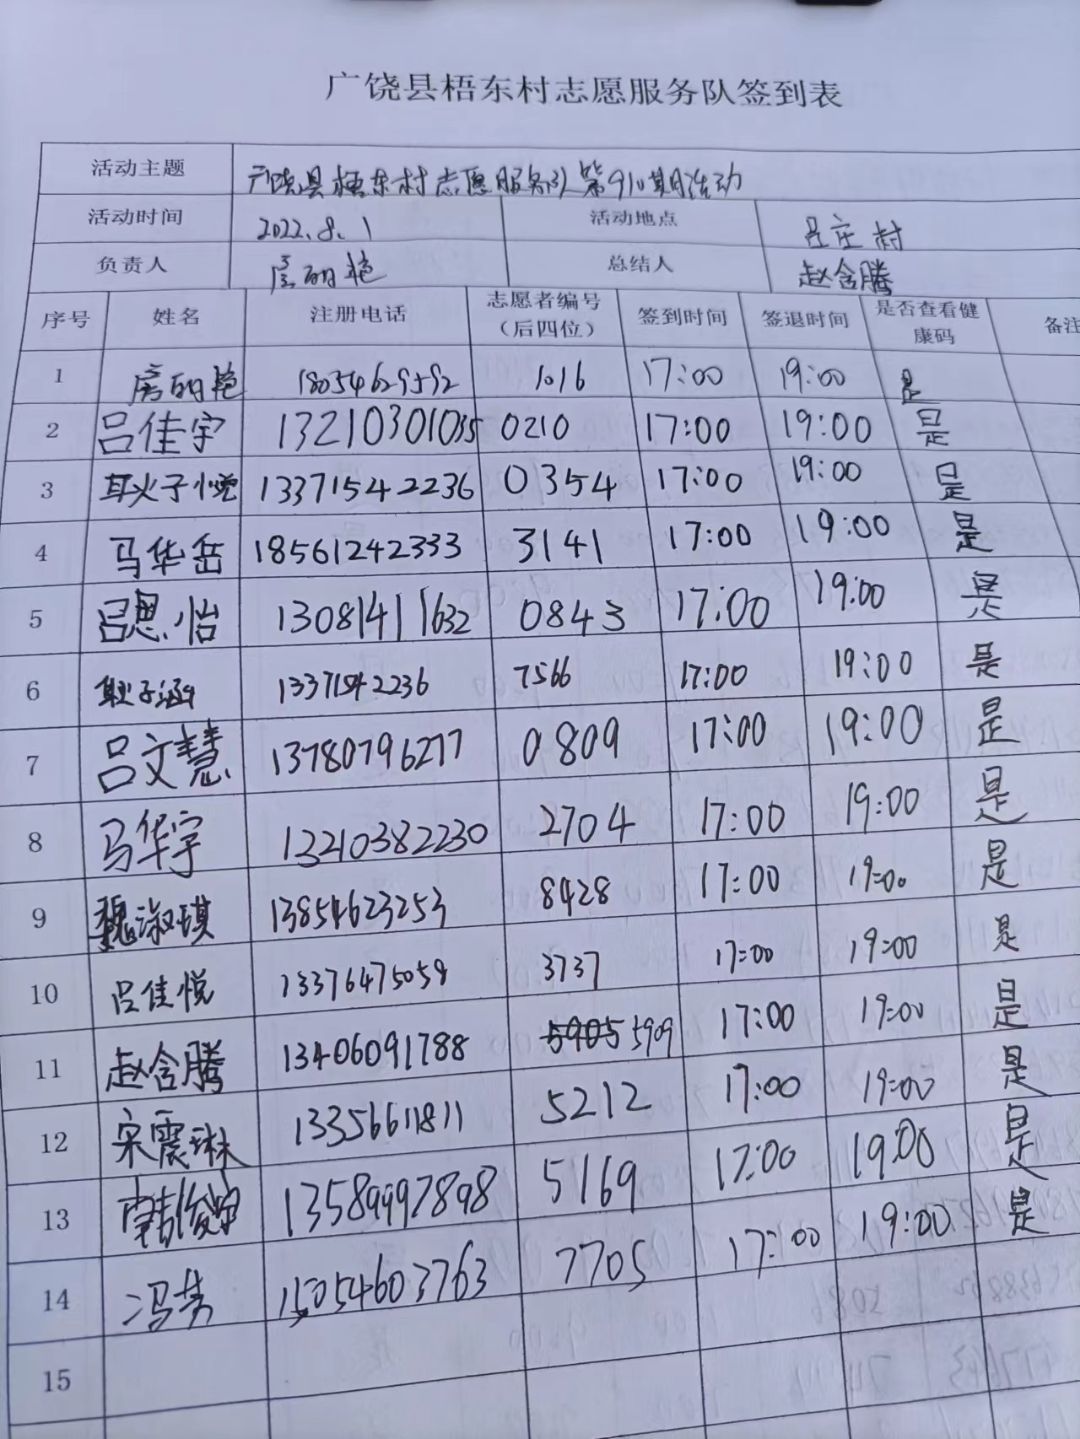 广饶县梧东村志愿服务队签到表
活动主题 广饶县梧东村志愿服务队第910期活动
活动时间 2022.8.1 活动地点 吕庄村
负责人 房丽艳 总结人 赵含腾
序号 姓名 注册电话 志愿者编号（后四位） 签到时间 签退时间 是否查看健康码 备注
1 房丽艳 18054629592 1016 17:00 19:00 是
2 吕佳宇 13210301035 0210 17:00 19:00 是
3 耿子悦 13371542236 0354 17:00 19:00 是
4 马华岳 18561242333 3141 17:00 19:00 是
5 吕思怡 13081411632 0843 17:00 19:00 是
6 耿子涵 13371542236 7566 17:00 19:00 是
7 吕文慧 13780796277 0809 17:00 19:00 是
8 马华宇 13210382230 2704 17:00 19:00 是
9 魏淑琪 13854623253 8428 17:00 19:00 是
10 吕佳悦 13376475059 3737 17:00 19:00 是
11 赵含腾 13406091788 5905 5909 17:00 19:00 是
12 宋震琳 13356611811 5212 17:00 19:00 是
13 韩俊 13589997898 5169 17:00 19:00 是
14 冯芳 15054603763 7705 17:00 19:00 是
15